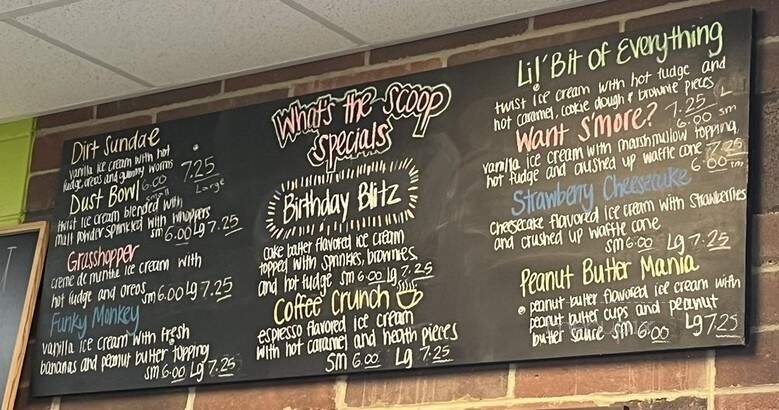 Dirt Sundae
vanilla ice cream with hot
fudge, oreos and gummy worms
6.00 small
7.25 Large
Dust Bowl
twist ice cream blended with
malt powder sprinkled with whoppers
sm 6.00 Lg 7.25
Grasshopper
creme de menthe ice cream with
hot fudge and oreos sm 6.00 Lg 7.25
Funky Monkey
vanilla ice cream with fresh
bananas and peanut butter topping
sm 6.00 Lg 7.25
What's the scoop
specials
Birthday Blitz
cake batter flavored ice cream
topped with sprinkles, brownies,
and hot fudge sm 6.00 Lg 7.25
Coffee Crunch
espresso flavored ice cream
with hot caramel and heath pieces
sm 6.00 Lg 7.25
Lil' Bit of Everything
twist ice cream with hot fudge and
hot caramel, cookie dough & brownie pieces
7.25 L
6.00 sm
Want S'more?
vanilla ice cream with marshmallow topping,
hot fudge and crushed up waffle cone 7.25
6.00 sm
Strawberry Cheesecake
cheesecake flavored ice cream with strawberries
and crushed up waffle cone
sm 6.00 Lg 7.25
Peanut Butter Mania
peanut butter flavored ice cream with
peanut butter cups and peanut
butter sauce sm 6.00 Lg 7.25